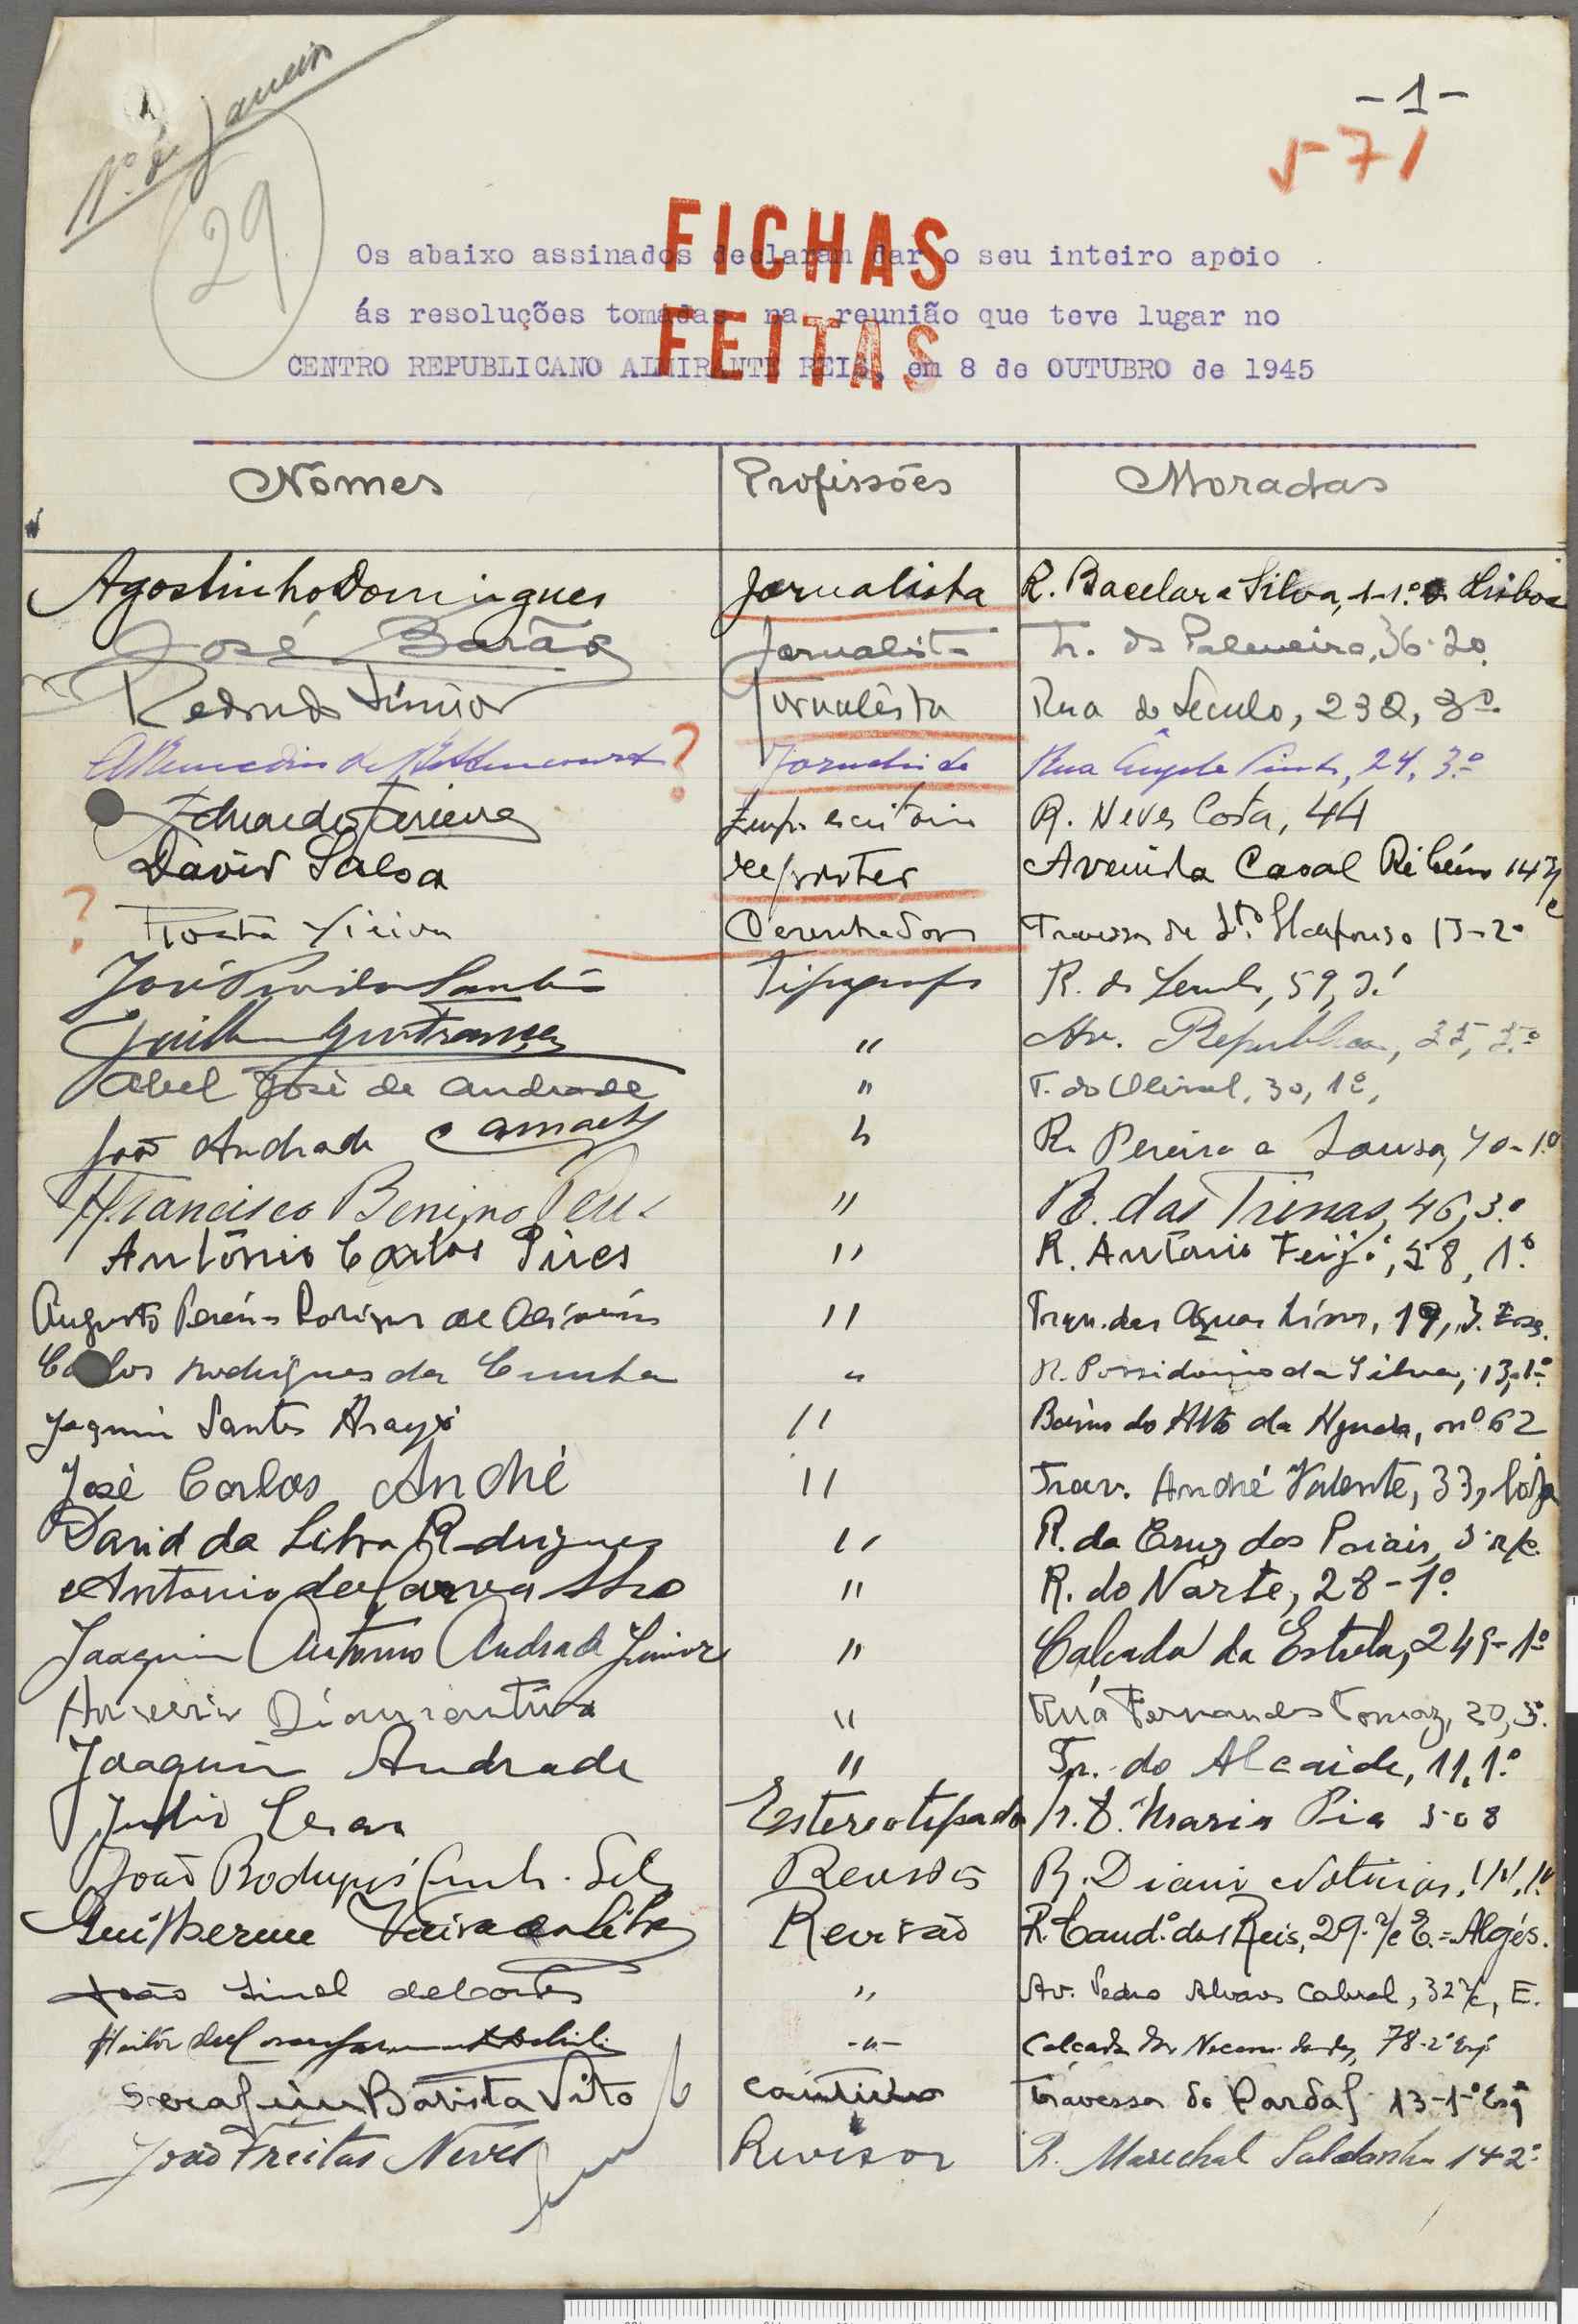 1º de Janeiro
29
- 1 -
571
FICHAS
FEITAS
Os abaixo assinados declaram dar o seu inteiro apoio
ás resoluções tomadas na reunião que teve lugar no
CENTRO REPUBLICANO ALMIRANTE REIS, em 8 de OUTUBRO de 1945
Nômes Profissões Moradas
Agostinho Domingues Jornalista R. Bacelar e Silva, 1-1.º Lisboa
José Barão Jornalista Tr. da Palmeira, 36-2º
Redondo Júnior Jornalista Rua do Século, 232, 3º
? Jornalista Rua Ângela Pinto, 24, 3.º
Eduardo Ferreira Emp. escritório R. Neves Costa, 44
David Salsa repórter Avenida Casal Ribeiro 14
? Vieira Desenhador Travessa de Sto. Ildefonso 15-2º
José Santos Tipografo R. do Seculo, 59, 2.º
" Av. Republica,
Abel José de Andrade " T. do Olival, 30, 1º,
João Andrade " R. Pereira e Sousa, 40-1.º
Francisco Benigno " R. das Trinas, 46, 3.º
António Carlos Pires " R. António Feijó, 58, 1.º
Augusto Pereira Rodrigues de Oliveira " Trav. das Aguas Livres, 19, 3. Esq.
Carlos Rodrigues da Cunha " R. Possidonio da Silva, 13, 1º
Joaquim Santos Araujo " Bairro do Alto da Ajuda, nº 62
José Carlos André " Trav. André Valente, 33, lója
David da Silva Rodrigues " R. da Cruz dos Poiais, 5 r/c.
Antonio de Carvalho " R. do Norte, 28-1º.
Joaquim Antonio Andrade Junior " Calçada da Estrela, 249-1º
Diamantino " Rua Fernandes Tomaz, 20, 3º.
Joaquim Andrade " Tr. do Alcaide, 11, 1.º
Julio Cesar Estereotipador R. D. Maria Pia 508
João Rodrigues Revisor R. Diario Noticias,
Guilherme Vieira da Silva Revisão R. Cand.º dos Reis, 29-r/c E. = Algés.
João Sinel de Cordes " Av. Pedro Alvares Cabral, 32 r/c, E.
Heitor -"- Calçada das Necessidades, 78-2º Esqº
Serafim Batista Vito contínuo Travessa do Pardal 13-1-º Esqº
João Freitas Neves Revisor R. Marechal Saldanha 14-2º